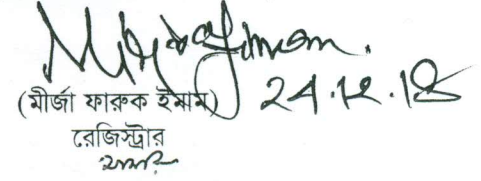 (মীর্জা ফারুক ইমাম) 24.12.18
রেজিস্ট্রার